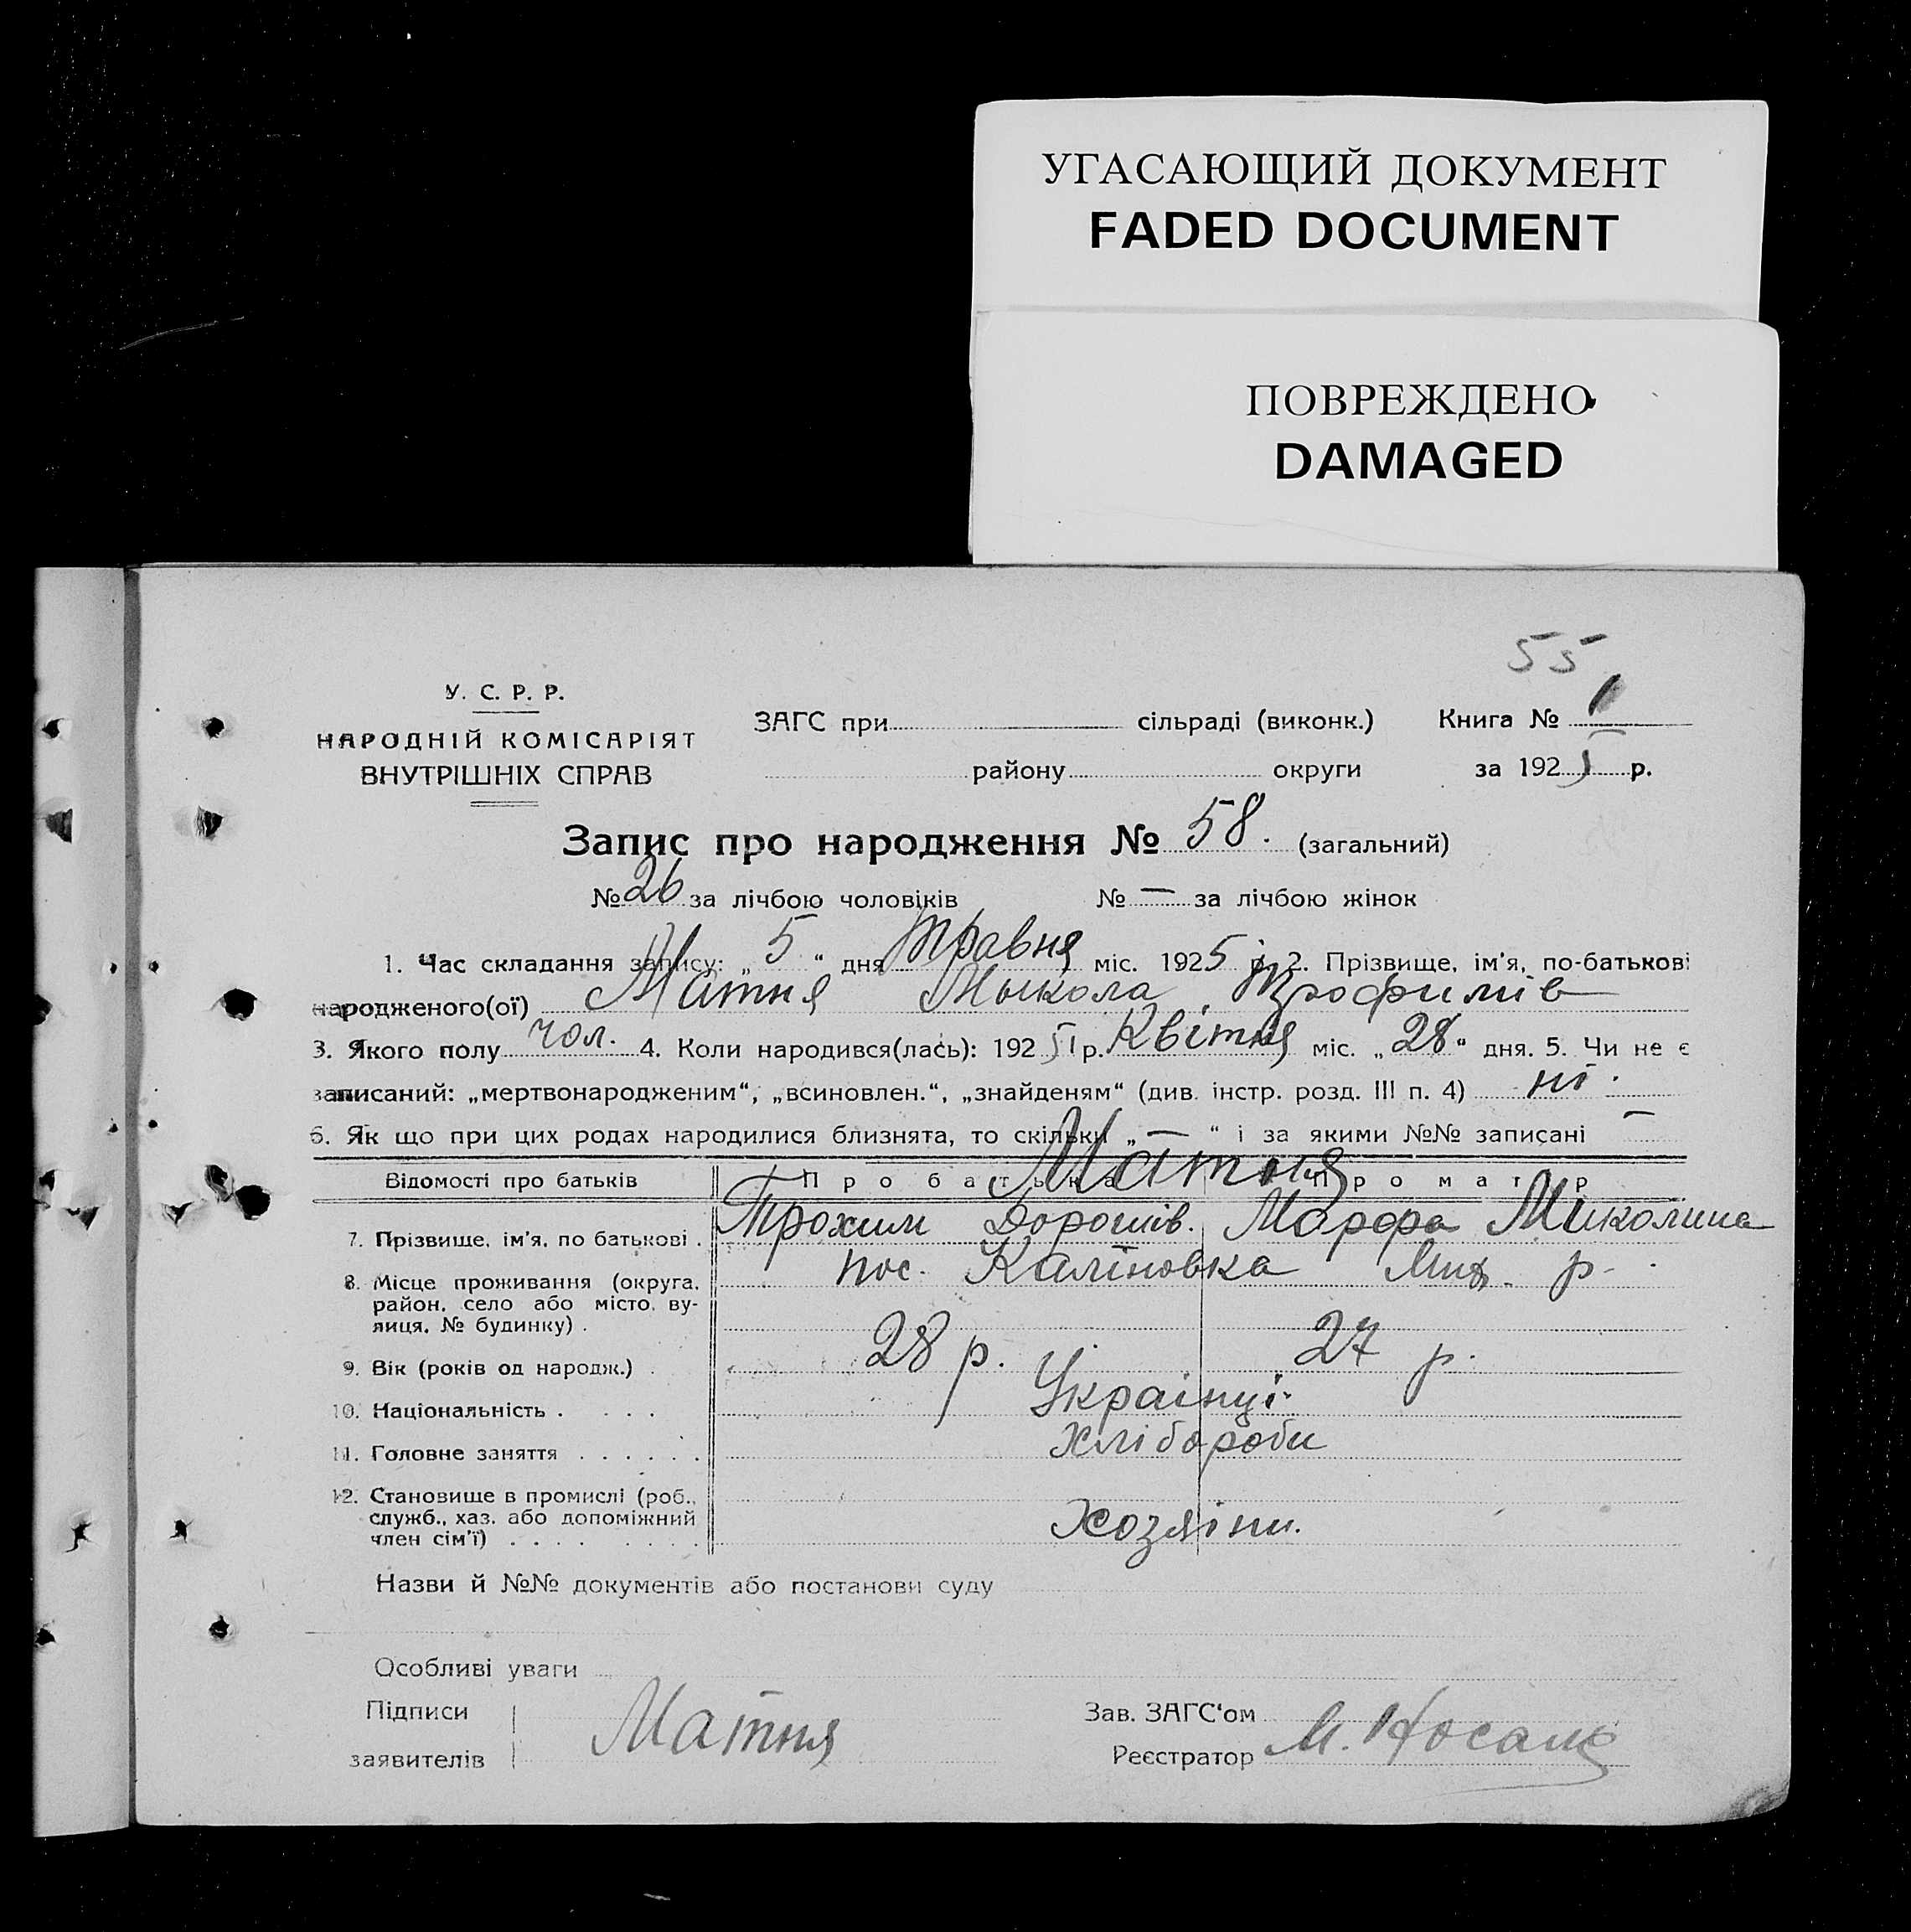 УГАСАЮЩИЙ ДОКУМЕНТ
FADED DOCUMENT
ПОВРЕЖДЕНО
DAMAGED
55
У. С. Р. Р.
НАРОДНІЙ КОМІСАРІЯТ
ВНУТРІШНІХ СПРАВ
ЗАГС при сільраді (виконк.) Книга № 1
району округи за 1925 р.
Запис про народження № 58. (загальний)
№ 26 за лічбою чоловіків № — за лічбою жінок
1. Час складання запису: „ 5 “ дня Травня міс. 1925 р. 2. Прізвище, ім'я, по-батькові
народженого(ої) Матня Микола Трофимів
3. Якого полу чол. 4. Коли народився(лась): 1925 р. Квітня міс. „ 28 “ дня. 5. Чи не є
записаний: „мертвонародженим“, „всиновлен.“, „знайденям“ (див. інстр. розд. III п. 4) ні.
6. Як що при цих родах народилися близнята, то скільки „ — “ і за якими №№ записані —
Матня
Відомості про батьків Про батька Про матір
7. Прізвище, ім'я, по батькові . Трохим Дорошів. Марфа Миколина
8. Місце проживання (округа, пос. Каліновка р.
район, село або місто, ву-
лиця, № будинку) .
9. Вік (років од народж.) . 28 р. 27 р.
10. Національність . . . . Українці.
11. Головне заняття . . . . . . Хлібороби
12. Становище в промислі (роб.,
служб., хаз. або допоміжний Хозяіни.
член сім'ї) . . . . . . . .
Назви й №№ документів або постанови суду
Особливі уваги
Підписи Матня Зав. ЗАГС'ом
заявителів Реєстратор М.